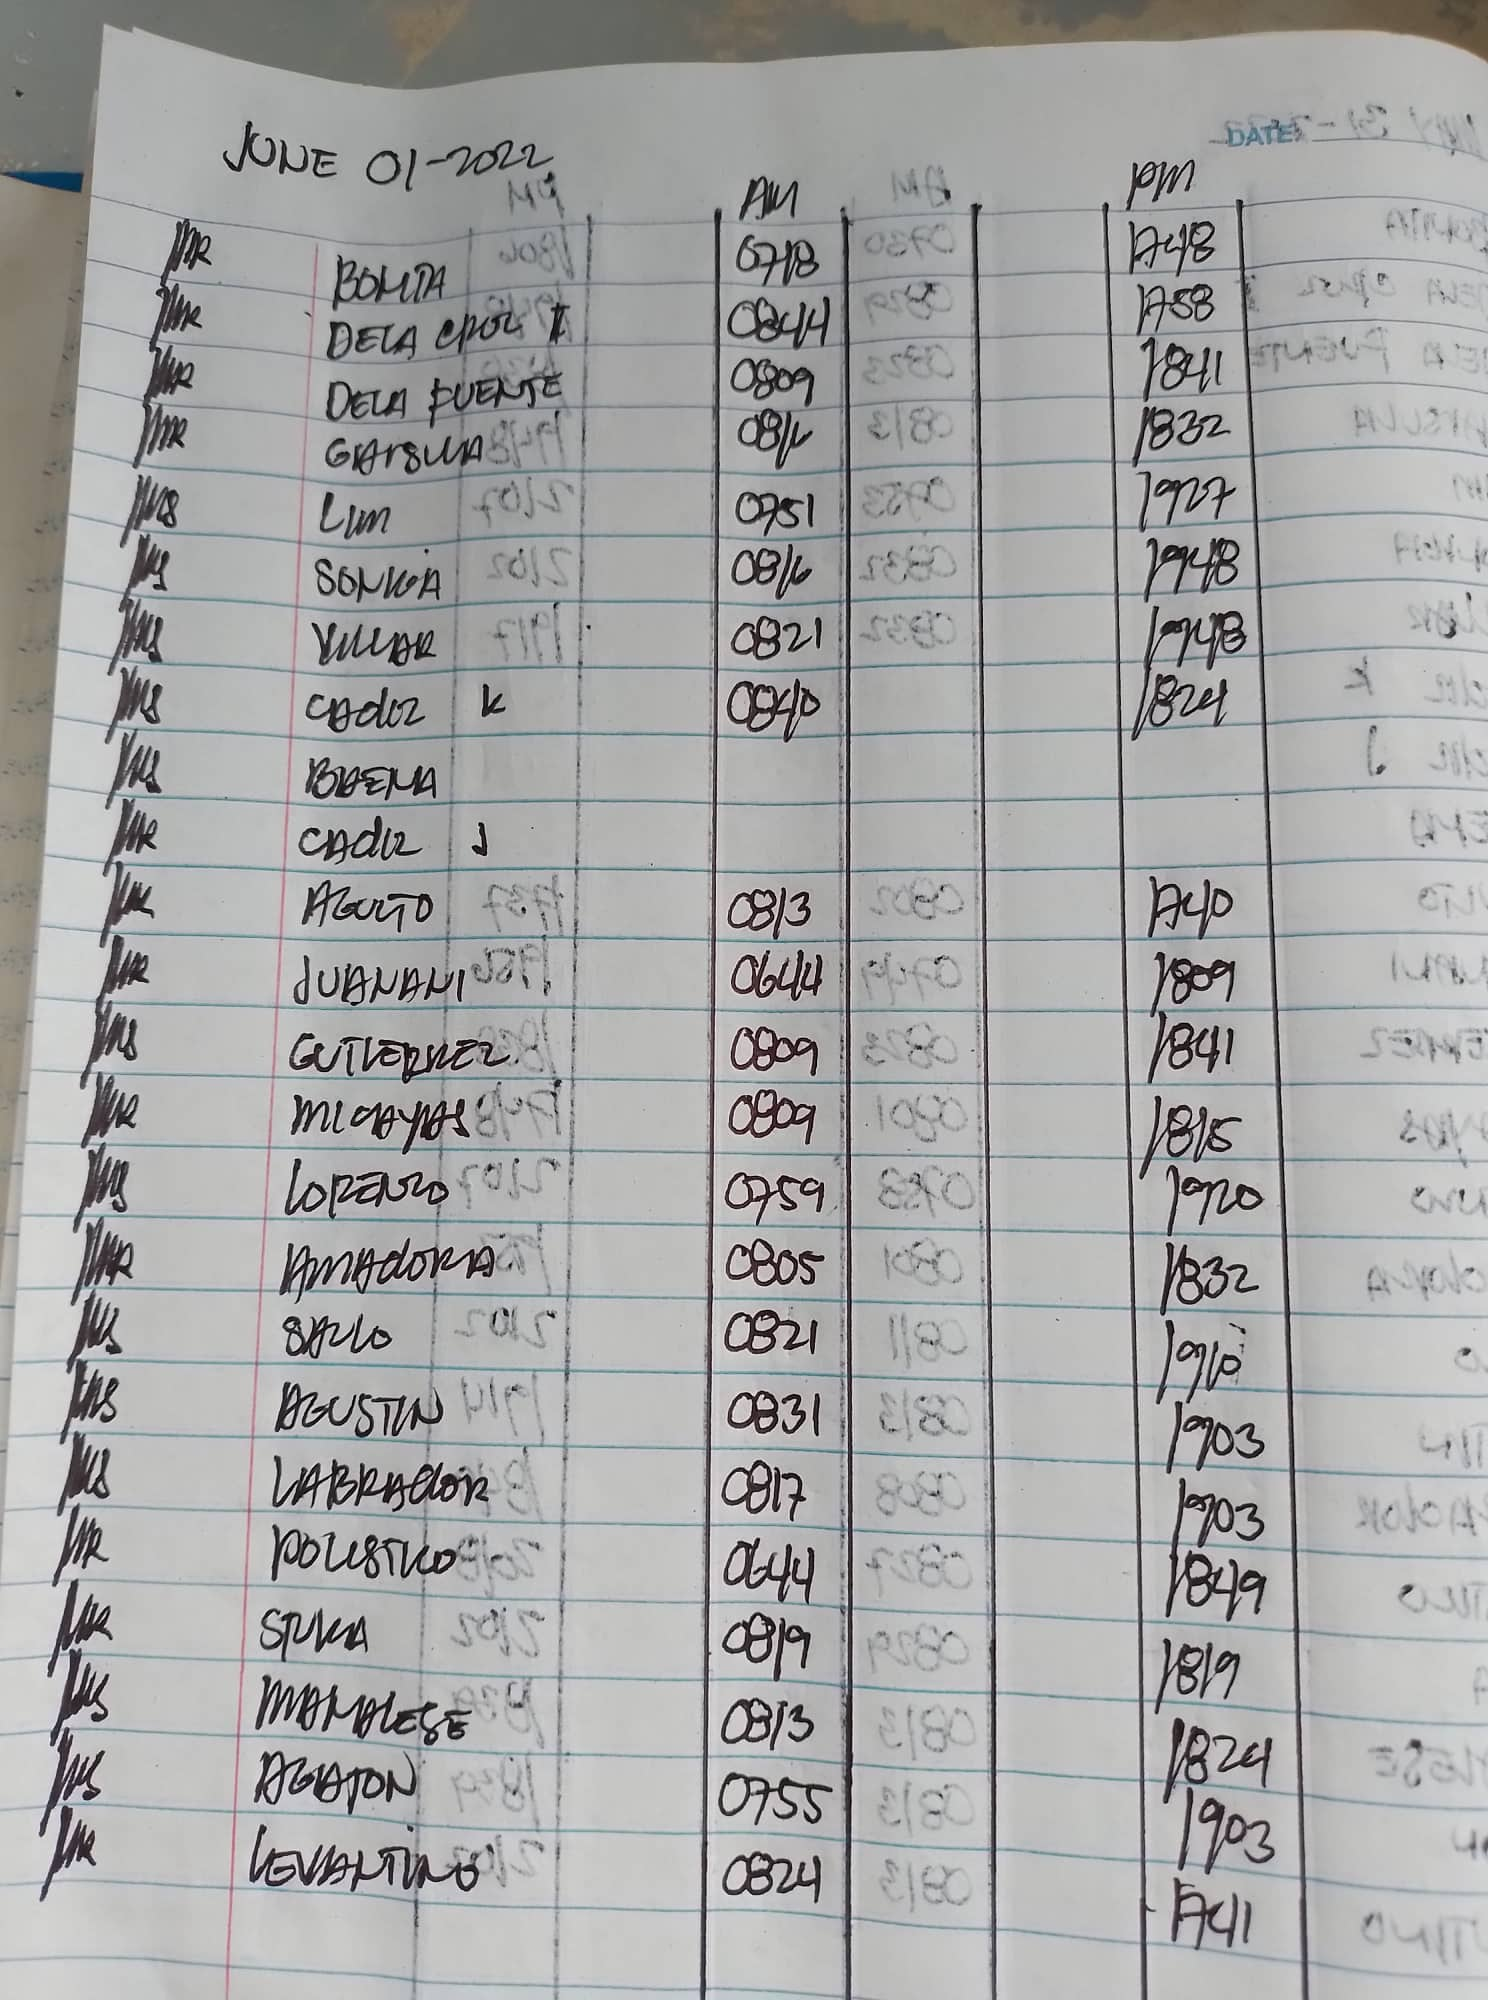 DATE:
JUNE 01-2022
AM PM
MR BONITA 0718 1748
MR DELA CRUZ II 0844 1758
MR DELA PUENTE 0809 1841
MR GARSULA 0816 1832
MS LIM 0751 1927
MS SONGA 0816 1948
MS VILLAR 0821 1948
MS CADIZ K 0840 1824
MS BAENA
MR CADIZ J
MR AGULTO 0813 1740
MR JUANANI 0644 1809
MS GUTIERREZ 0809 1841
MR MICAYAS 0809 1815
MS LORENZO 0759 1920
MR AMADORA 0805 1832
MS SALLO 0821 1910
MS AGUSTIN 0831 1903
MS LABRADOR 0817 1903
MR POLISTICO 0644 1849
MR 0819 1819
MS MAMALESE 0813 1824
MS AGATON 0755 1903
MR LEVANTINO 0824 1741